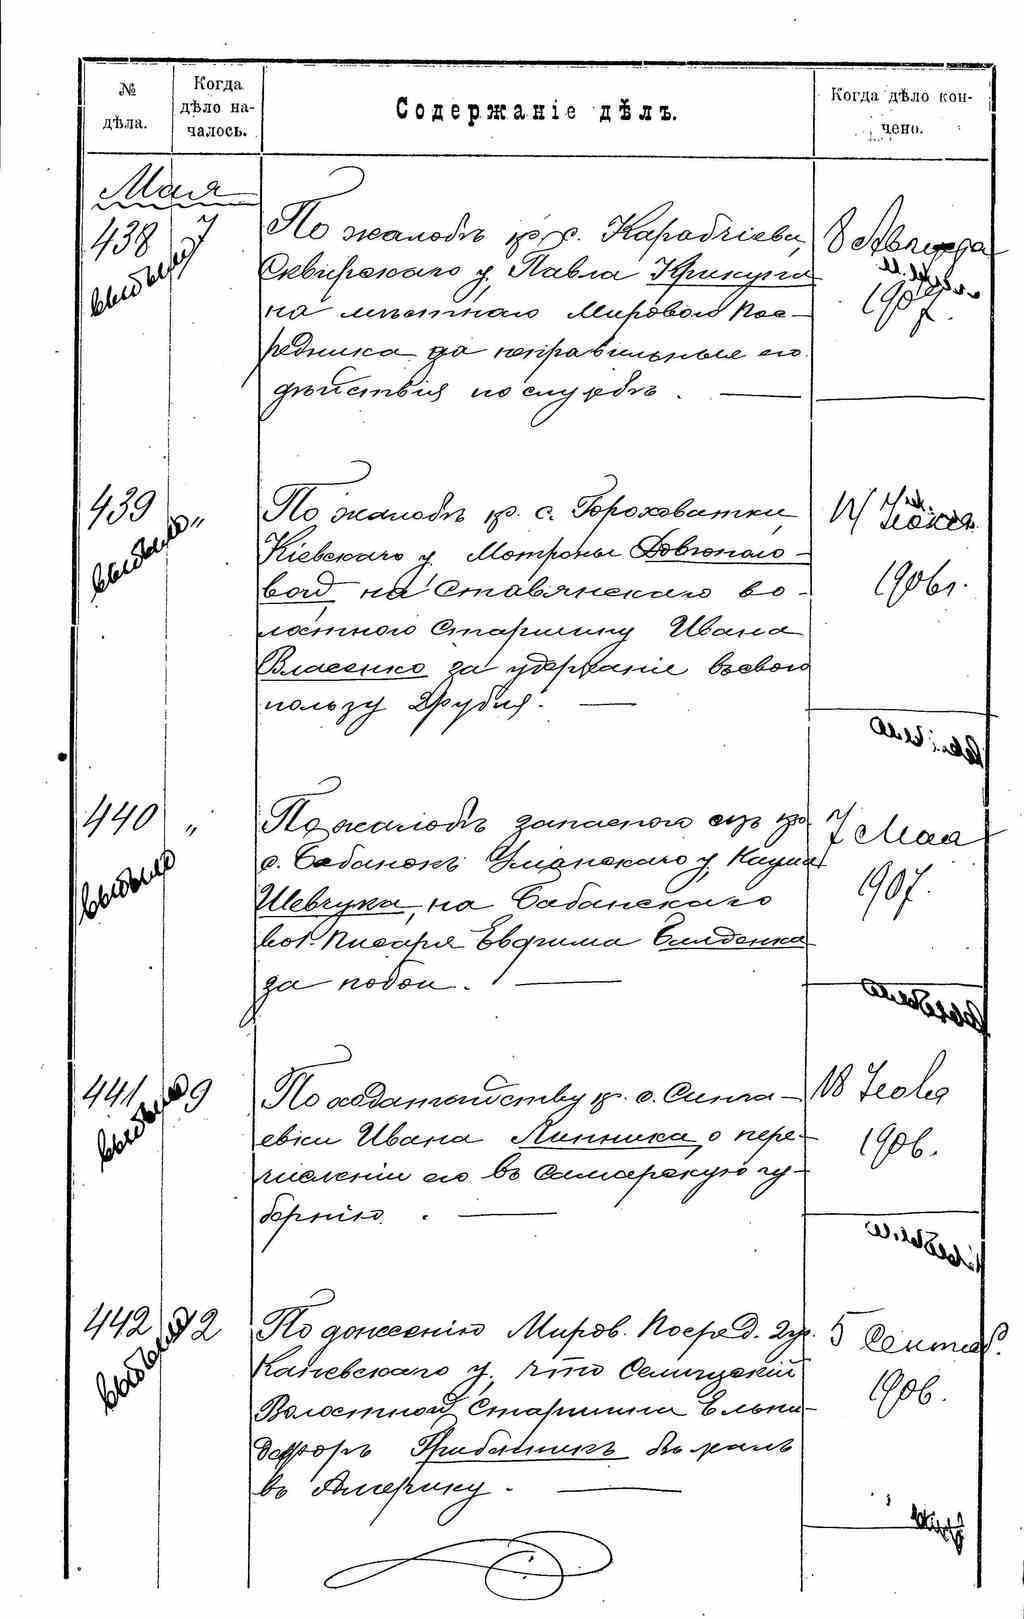 № дѣла.
Когда дѣло на-
чалось.
Содержаніе дѣлъ.
Когда дѣло кон-
чено.
Мая
438 7
выбыло
По жалобѣ кр. с. Карабчіева,
Сквирскаго у. Павла Крикуна
на мѣстнаго Мирового Пос-
редника за неправильныя его
дѣйствія по службѣ.
8 Августа
1907.
439 "
выбыло
По жалобѣ кр. с. Гороховатки,
Кіевскаго у. Мотроны Довгопол-
вой на Ставянскаго во-
лостного Старшину Ивана
Власенко за удержаніе въ свою
пользу 2 рубля.
14 Іюня
1906 г.
440 "
выбыло
По жалобѣ запасного изъ кр.
с. Бабанокъ Уманскаго у.
Шевчука, на Бабанскаго
вол. Писаря Евфима
за побои.
7 Мая
1907.
441 9
выбыло
По ходатайству кр. с. Синга-
евки Ивана Линника, о пере-
численіи его въ Самарскую гу-
бернію.
18 Іюля
1906.
442 12
выбыло
По донесенію Миров. Посред. 2 уч.
Каневскаго у. что
Волостной Старшина Ельпи-
дифоръ Грибанникъ бѣжалъ
въ Америку.
5 Сентяб.
1906.